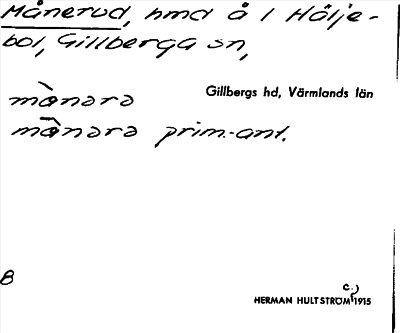 Månerud, hmd å 1 Hölje-
bol, Gillberga sn,
Gillbergs hd, Värmlands län
mànərə
mànərə prim.-ant.
B
c.)
HERMAN HULTSTRÖM 1915